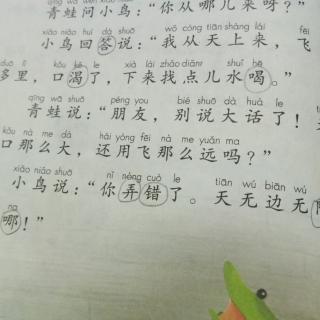 qīng wā wèn xiǎo niǎo nǐ cóng nǎ ér lái ya
青蛙问小鸟：“你从哪儿来呀？”
xiǎo niǎo huí dá shuō wǒ cóng tiān shàng lái fēi
小鸟回答说：“我从天上来，飞
duō lǐ kǒu kě le xià lái zhǎo diǎnr shuǐ hē
多里，口渴了，下来找点儿水喝。”
qīng wā shuō péng you bié shuō dà huà le
青蛙说：“朋友，别说大话了！
kǒu nà me dà hái yòng fēi nà me yuǎn ma
口那么大，还用飞那么远吗？”
xiǎo niǎo shuō nǐ nòng cuò le tiān wú biān wú
小鸟说：“你弄错了。天无边无
na
哪！”